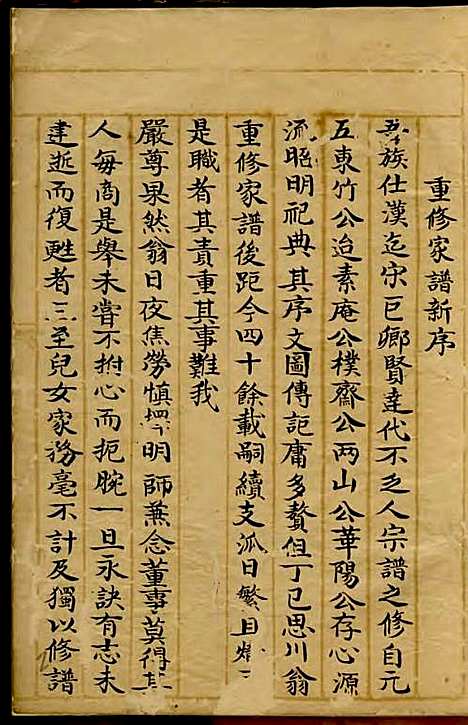 重修家譜新序
吾族仕漢迄宋已鄉賢達代不乏人宗譜之修自元
五東竹公迨素庵公樸齋公兩山公華陽公存心源
流昭明祀典其序文圖傳詎庸多贅但丁巳思川翁
重修家譜後距今四十餘載嗣續支派日繁且
是職者其責重其事難我
嚴尊果然翁日夜焦勞慎擇明師兼念董事莫得其
人每商是舉未嘗不拊心而扼腕一旦永訣有志未
逮逝而復甦者三至兒女家務毫不計及獨以修譜